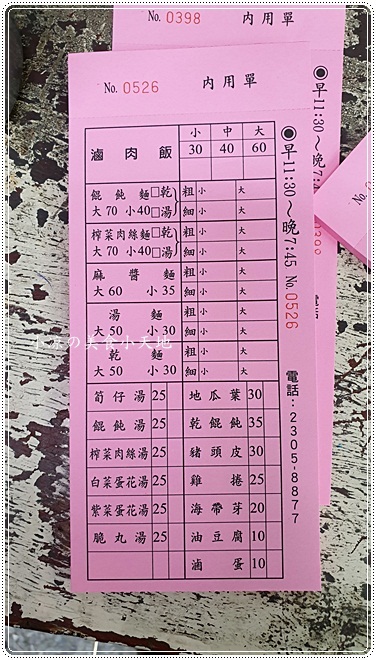 No. 0398 内用單
No. 0526 内用單
滷肉飯 小 中 大
30 40 60
餛飩麵 □乾 粗 小 大
大 70 小 40 □湯 細 小 大
榨菜肉絲麵 □乾 粗 小 大
大 70 小 40 □湯 細 小 大
麻醬麵 粗 小 大
大 60 小 35 細 小 大
湯麵 粗 小 大
大 50 小 30 細 小 大
乾麵 粗 小 大
大 50 小 30 細 小 大
筍仔湯 25 地瓜葉 30
餛飩湯 25 乾餛飩 35
榨菜肉絲湯 25 豬頭皮 30
白菜蛋花湯 25 雞捲 25
紫菜蛋花湯 25 海帶芽 20
脆丸湯 25 油豆腐 10
滷蛋 10
●早11:30～晚7:45 No. 0526
電話:2305-8877
●早11:30～晚7:4
0398
の美食小天地